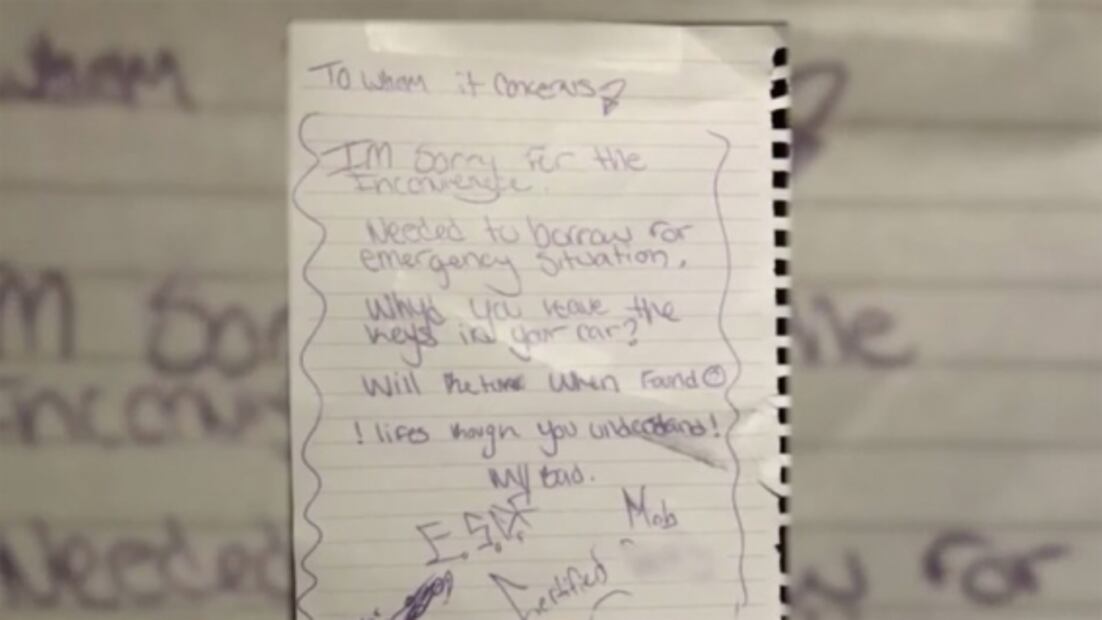 To whom it concerns
IM Sorry For the
Inconvience.
Needed to borrow for
emergency situation.
Whyd you leave the
keys in your car?
Will Return When Found
! lifes though you understand!
My bad.
E.S.K
Mob
Certified